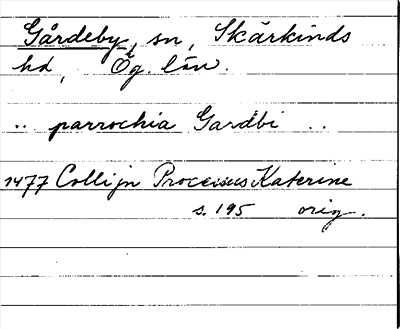 Gårdeby, sn, Skärkinds
hd, Ög. län.
.. parrochia Gardbi ..
1477 Collijn Processus Katerine
s. 195 orig.